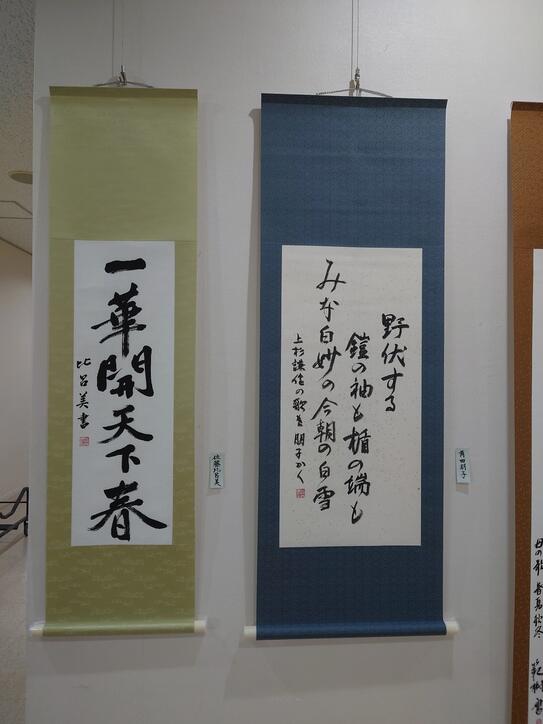 一華開天下春
比呂美書
佐藤比呂美
野伏する
鎧の袖も楯の端も
みな白妙の今朝の白雪
上杉謙信の歌を 朋子かく
角田朋子